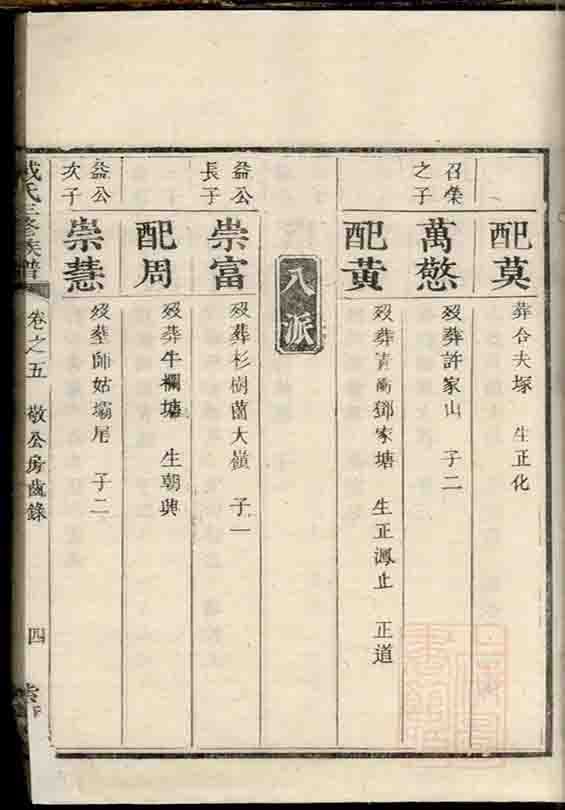 配莫
葬合夫塚 生正化
召榮之子
萬慜
歿葬許家山 子二
配黃
歿葬青 鄧家塘 生正鳳 正道
八派
益公長子
崇富
歿葬杉樹菌大嶺 子一
配周
歿葬牛欄塘 生朝興
益公次子
崇慧
歿塟師姑壩尾 子二
氏三修族譜
卷之五 敬公房齒錄
四